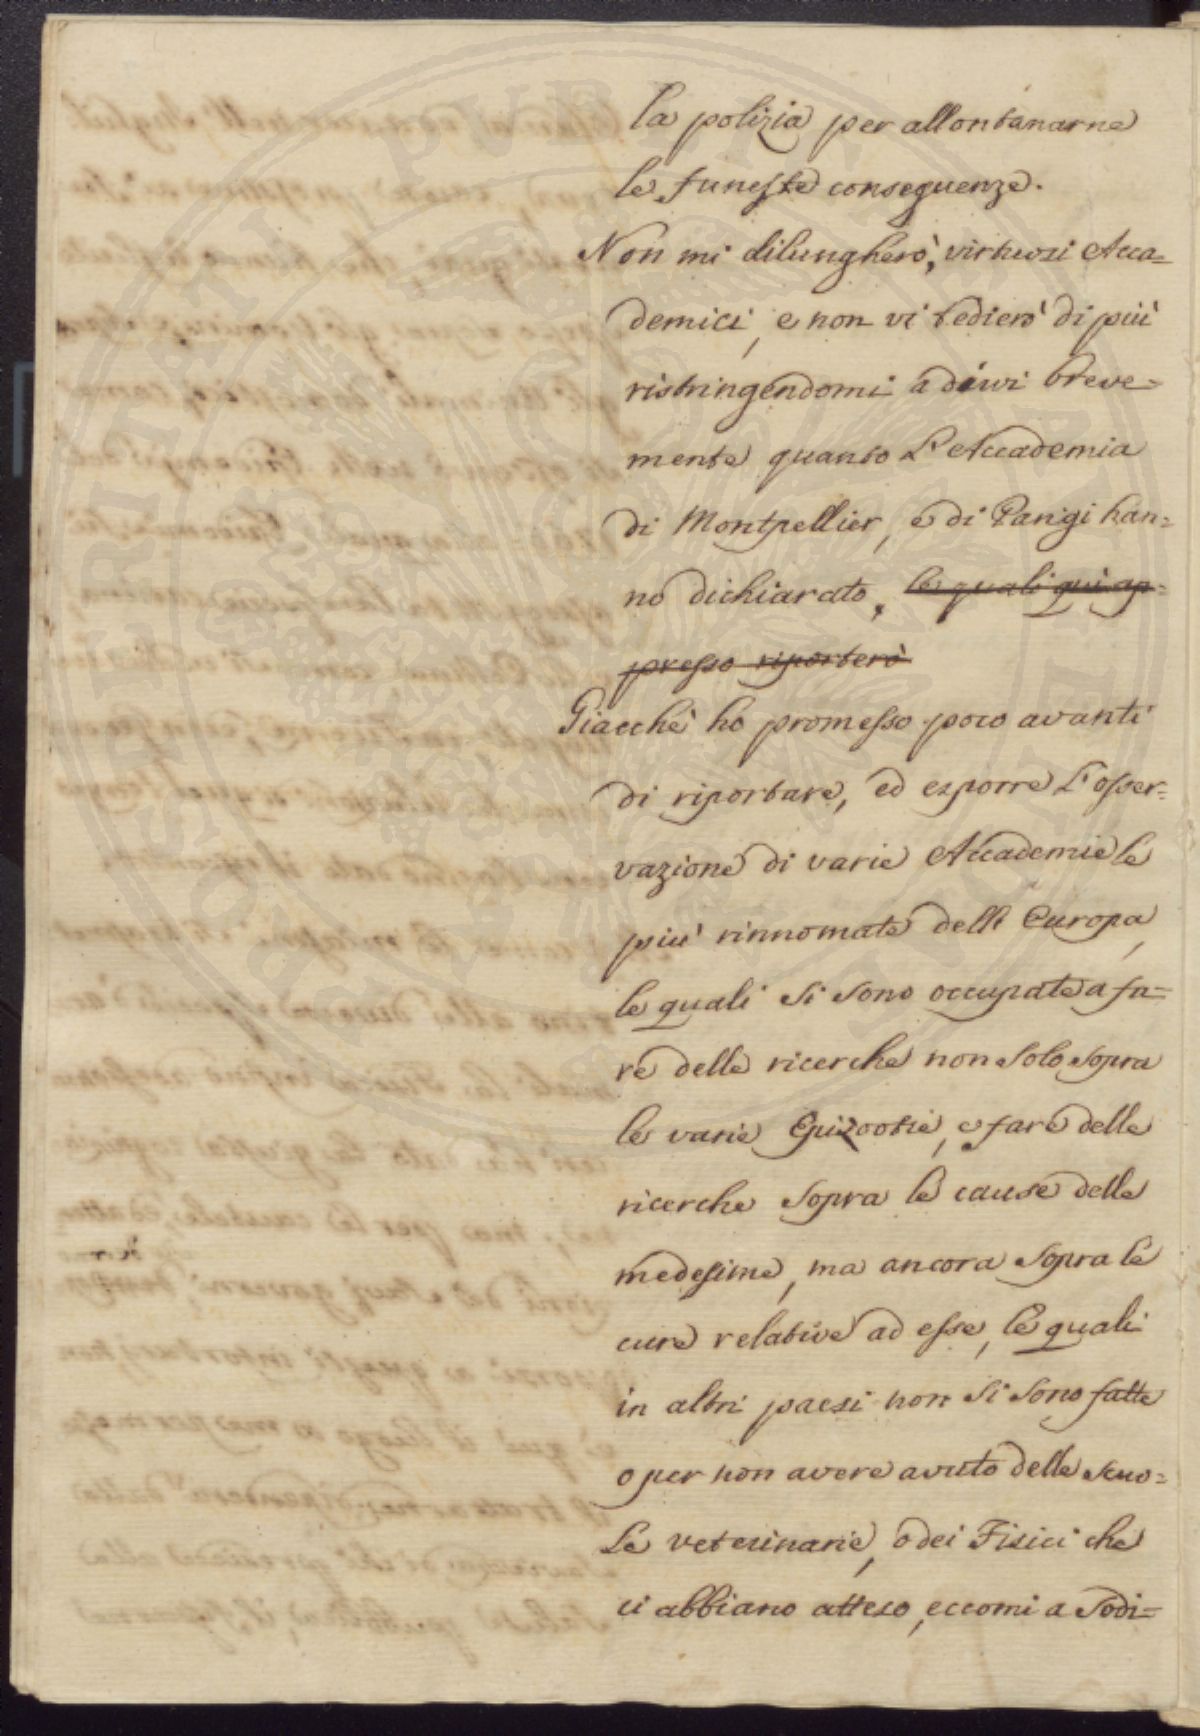 la polizia per allontanarne
le funeste conseguenze.
Non mi dilungherò, virtuosi Acca=
demici, e non vi tedierò di più
ristringendomi a dirvi breve=
mente quanto l'Accademia
di Montpellier, e di Parigi han=
no dichiarato, le quali qui ap=
presso riporterò
Giacchè ho promesso poco avanti
di riportare, ed esporre l'osser=
vazione di varie Accademie le
più rinnomate dell' Europa,
le quali si sono occupate a fa=
re delle ricerche non solo sopra
le varie Epizootie, e fare delle
ricerche sopra le cause delle
medesime, ma ancora sopra le
cure relative ad esse, le quali
in altri paesi non si sono fatte
o per non avere avuto delle scuo=
le veterinarie, o dei Fisici che
ci abbiano atteso, eccomi a sodi=